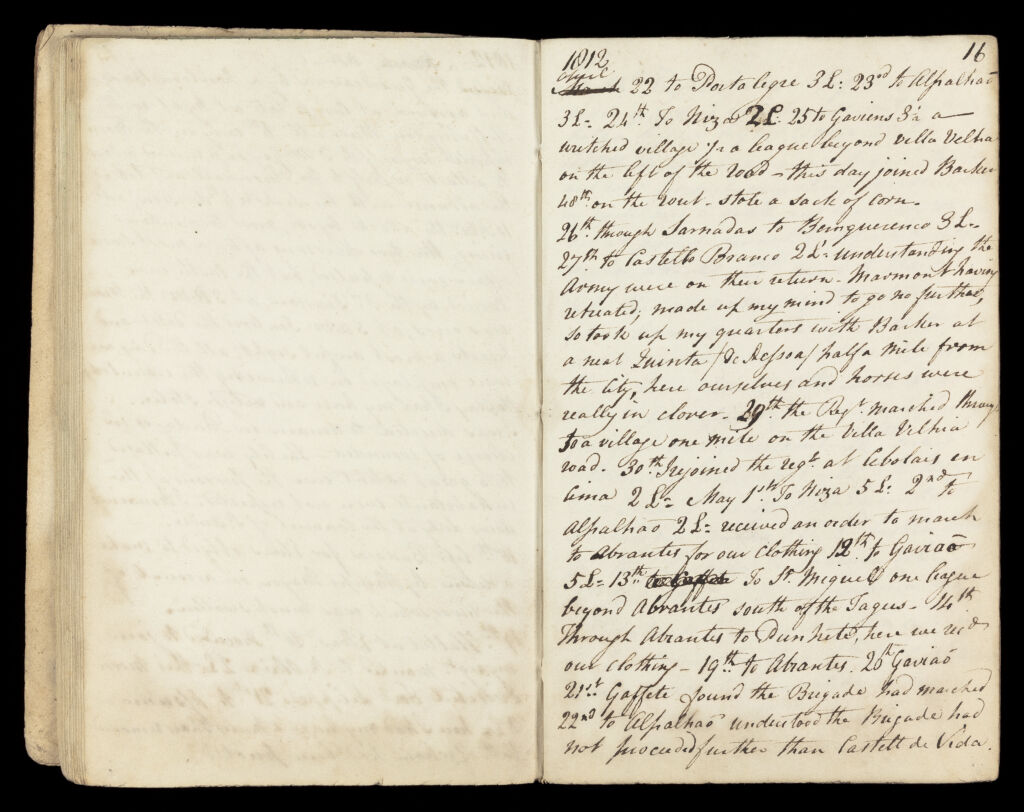 1812 16
April
March 22 to Portalegre 3 L= 23rd to Alpalhaõ
3 L= 24th To Niza 2 L= 25 to Gaviens 3½ a
wretched village ½ a league beyond Villa Velha
on the left of the road - this day joined Barker
48th on the rout - stole a sack of corn.
26th through Sarnadas to Bemquerenco 3 L=
27th to Castello Branco 2 L= understanding the
Army were on their return - Marmont having
retreated; made up my mind to go no further,
so took up my quarters with Barker at
a neat Quinta / half a mile from
the City, here ourselves and horses were
really in clover. 29th the Regt. marched through
to a village one mile on the Villa Velha
road. 30th I rejoined the regt at Cebolais en
Cima 2 L= May 1st To Niza 5 L= 2nd to
Alpalhaõ 2 L= received an order to march
to Abrantes for our clothing 12th to Gaviaõ
5 L= 13th to Gaffete To St. Miguel one league
beyond Abrantes south of the Tagus - 14th
Through Abrantes to Punhete, here we recd
our clothing - 19th to Abrantes. 20th Gaviaõ
21st Gaffete found the Brigade had marched
22nd to Alpalhaõ understood the Brigade had
not proceeded further than Castell de Vida.